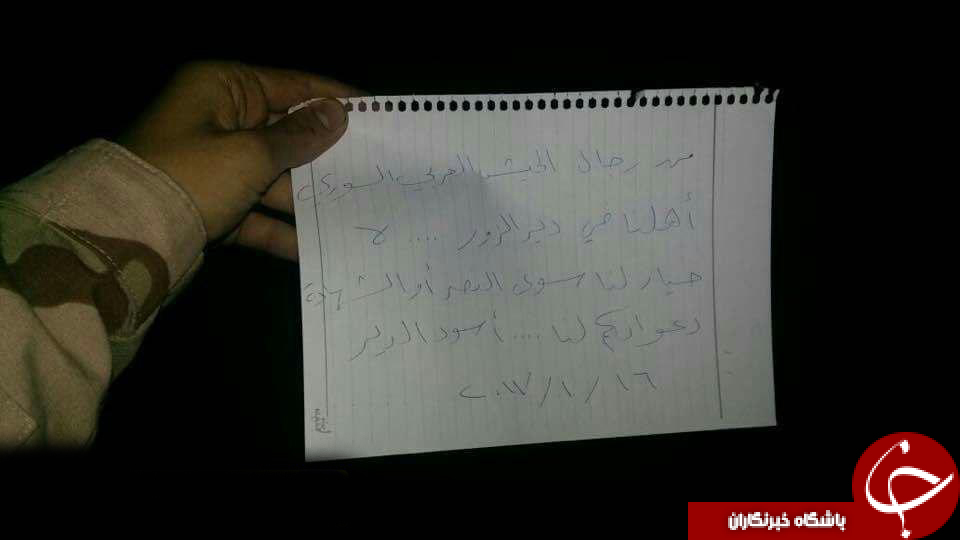 من رجال الجيش العربي السوري
أهلنا في دير الزور .... لا
خيار لنا سوى النصر أو الشهادة
دعواتكم لنا .... أسود الدير
١٦ / ١ / ٢٠١٧
باشگاه خبرنگاران